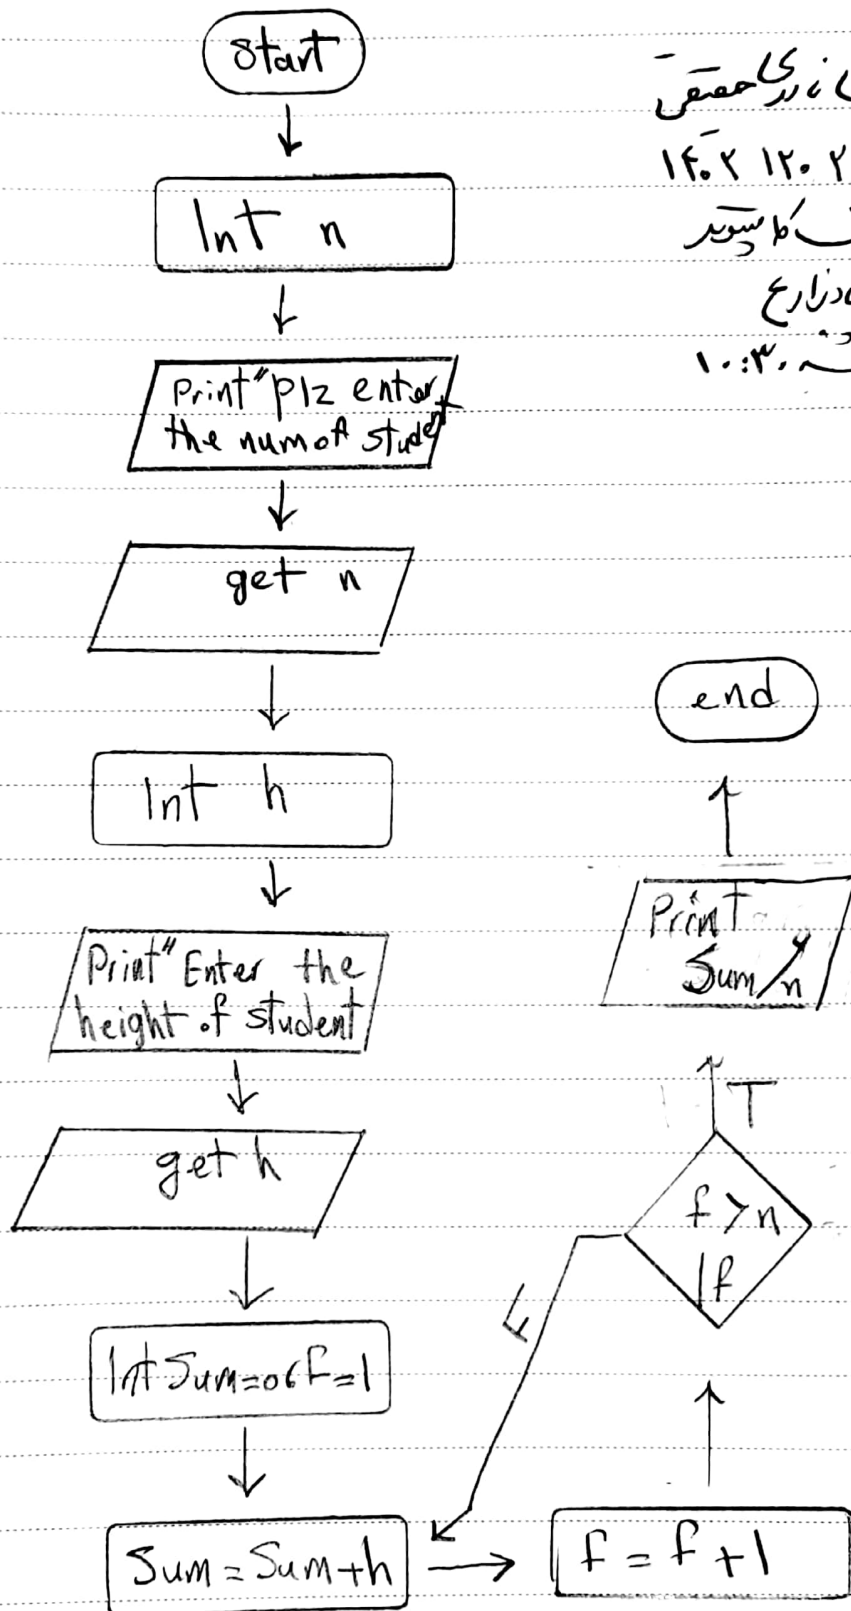 start
Int n
Print "Plz enter
the num of student
get n
Int h
Print "Enter the
height of student
get h
Int Sum=0، f=1
Sum = Sum + h
f = f + 1
f > n
If
F
T
Print
Sum/n
end
۱۰:۳۰